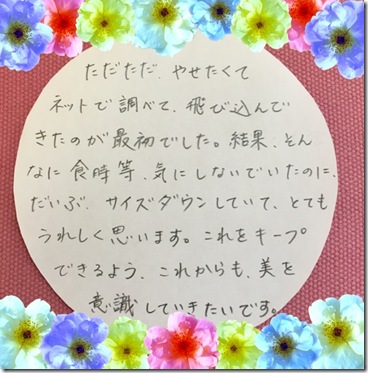 ただただ、やせたくて
ネットで調べて、飛び込んで
きたのが最初でした。結果、そん
なに食時等、気にしないでいたのに、
だいぶ、サイズダウンしていて、とても
うれしく思います。これをキープ
できるよう、これからも、美を
意識していきたいです。